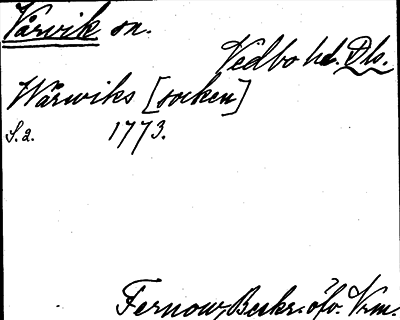 Vårvik sn.
Vedbo hd. Dls.
Wårwiks [socken]
S.2. 1773.
Fernow, Beskr. öfv. Vrm.